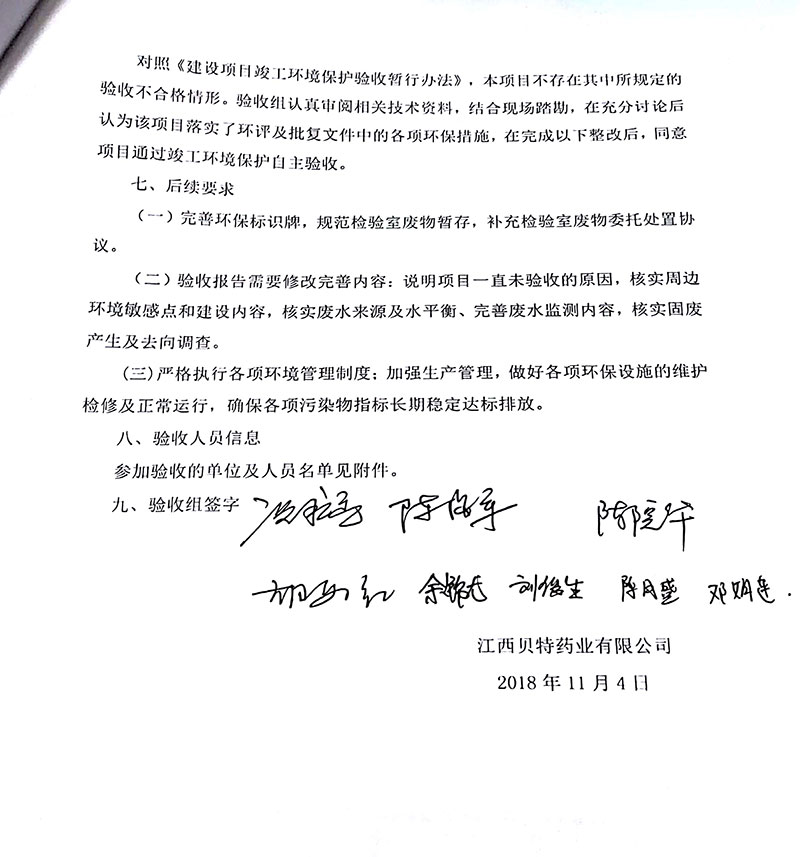 对照《建设项目竣工环境保护验收暂行办法》，本项目不存在其中所规定的
验收不合格情形。验收组认真审阅相关技术资料，结合现场踏勘，在充分讨论后
认为该项目落实了环评及批复文件中的各项环保措施，在完成以下整改后，同意
项目通过竣工环境保护自主验收。
七、后续要求
（一）完善环保标识牌，规范检验室废物暂存，补充检验室废物委托处置协
议。
（二）验收报告需要修改完善内容：说明项目一直未验收的原因，核实周边
环境敏感点和建设内容，核实废水来源及水平衡、完善废水监测内容，核实固废
产生及去向调查。
(三)严格执行各项环境管理制度；加强生产管理，做好各项环保设施的维护
检修及正常运行，确保各项污染物指标长期稳定达标排放。
八、验收人员信息
参加验收的单位及人员名单见附件。
九、验收组签字
刘俊生 陈月盛
江西贝特药业有限公司
2018 年 11 月 4 日